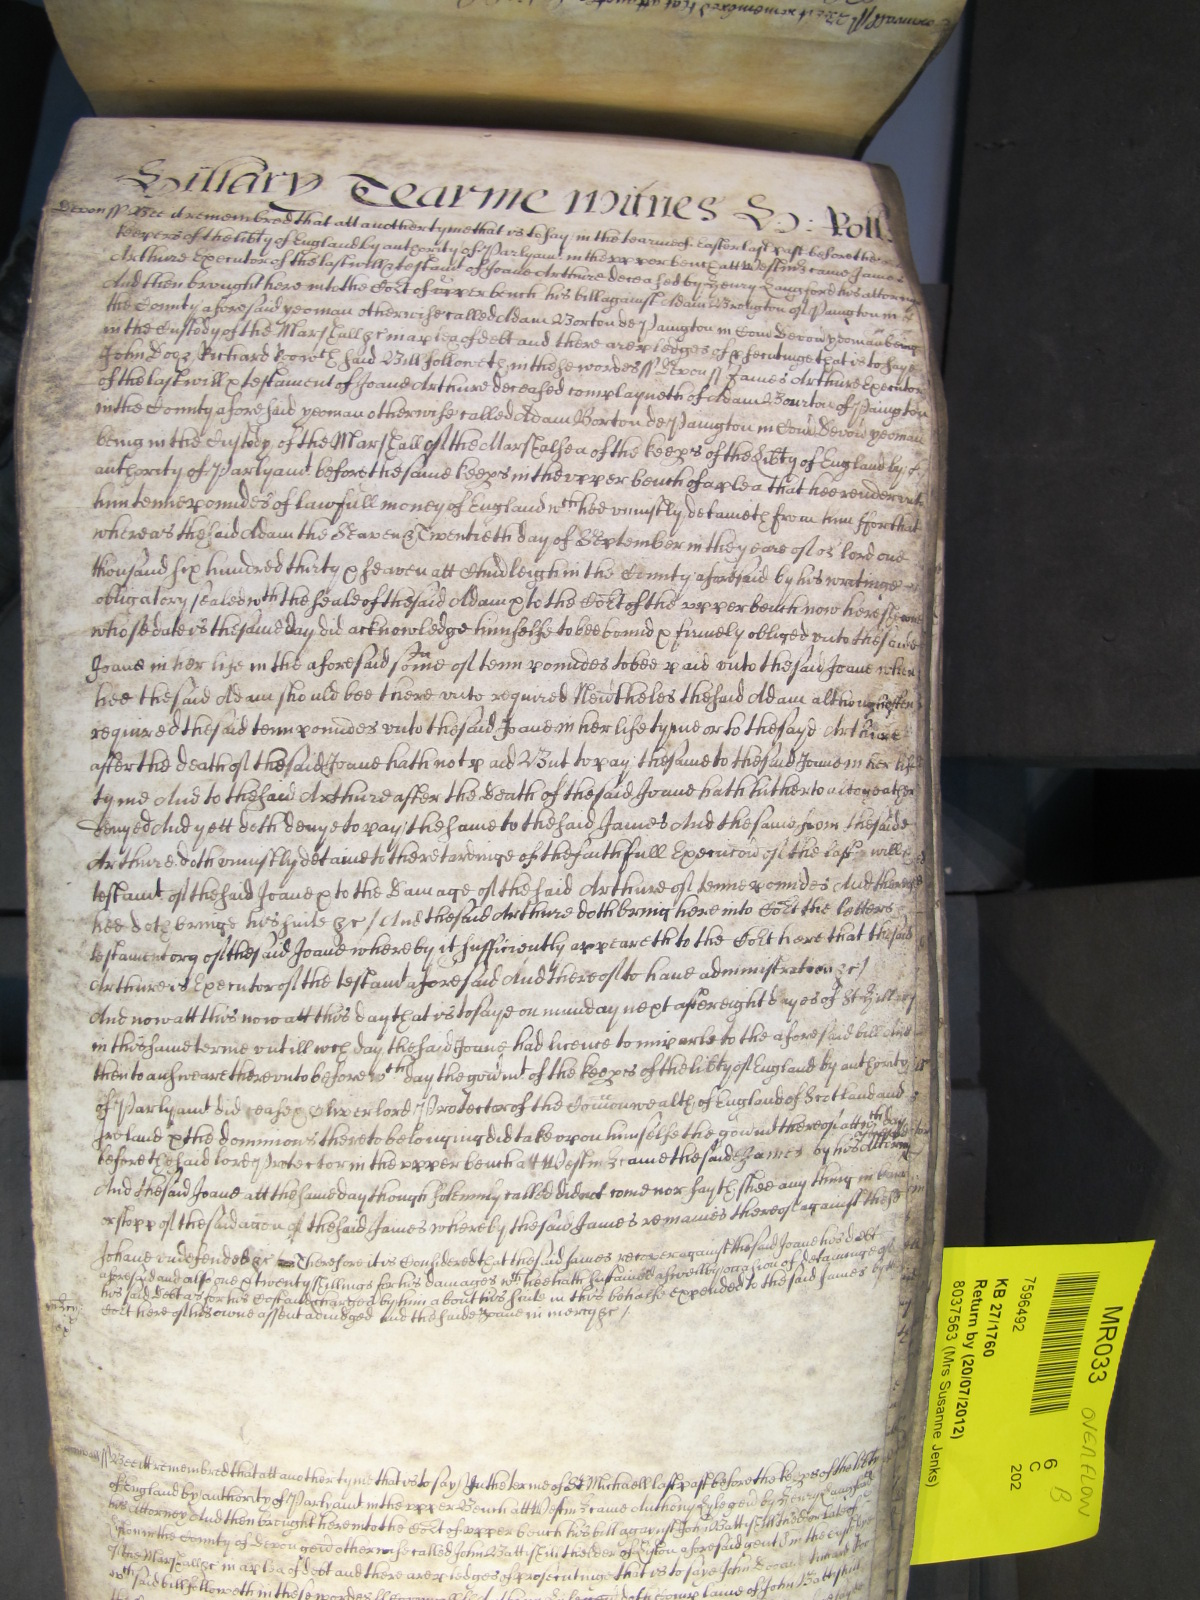 Hillary Tearme Witnes H: Roll
Devon ss Bee it remembred that att another tyme that is to say in the tearme of Easter last past before the
keepers of the lib'ty of England by authority of Parlyamt in the upper bench att Westmr came James
Arthure Executor of the last will & testamt of Joane Arthure deceased by Henry Langford his attorney
And then brought here into the Co'rt of upper bench his bill against Adam of Paington in
the County aforesaid yeoman otherwise called Adam Borton de Paington in Com Devon yeoman being
in the Custody of the Marshall &c in a plea of debt and there are pledges of p'secutinge that is to saye
John Doe & Richard Roe wch said Bill followeth in these wordes ss Devon ss James Arthure Executor
of the last will & testament of Joane Arthure deceased complayneth of Adam Bourton of Paington
in the County aforesaid yeoman otherwise called Adam Borton de Paington in Com Devon yeoman
being in the Custody of the Marshall of the Marshalsea of the keep's of the lib'ty of England by
authority of Parlyamt before the same keep's in the upper bench of a plea that hee render unto
him tenne poundes of lawfull money of England wch hee uniustly detaineth from him ffor that
whereas the said Adam the Seaven & Twentieth day of September in the yeare of or lord one
thousand six hundred thirty & seaven att Chudleigh in the County aforesaid by his writinge
obligatory sealed wth the seale of the said Adam & to the Co'rt of the upper bench now here shewed
whose date is the same day did acknowledge himselfe to bee bound & firmely obliged unto the said
Joane in her life in the aforesaid some of tenn poundes to bee paid unto the said Joane when
hee the said Adam should bee there unto required Nev'theles the said Adam although often
required the said tenn poundes unto the said Joane in her life tyme or to the sayd Arthure
after the death of the said Joane hath not paid But to pay the same to the said Joane in her life
tyme And to the said Arthure after the death of the said Joane hath hitherto altogeather
denyed And yett doth denye to pay the same to the said James And the same from the saide
Arthure doth uniustly detaine to the retardinge of the faithfull Execucon of the last will &
testamt of the said Joane & to the damage of the said Arthure of tenne poundes And thereof
hee doth bringe his suite &c / And the said Arthure doth bring here into Co'rt the letters
testamentory of the said Joane whereby it sufficiently appeareth to the Co'rt here that the said
Arthure is Executor of the testamt aforesaid And thereof to have administration &c /
And now att this now att this day that is to saye on munday next after eight dayes of St Hillary
in this same terme untill wch day the said Joane had licence to imparle to the aforesaid bill And
then to answeare thereunto before wch day the gov'mt of the keep's of the lib'ty of England by authority
of Parlyamt did cease & Oliver lord Protector of the Comonwealth of England of Scotland and
Ireland & the dominions thereto belonging did take upon himselfe the gov'mt thereof att wch day
before the said lord Protector in the upper bench att Westmr came the said James by his Attorney
And the said Joane att the same day though solemnly called did not come nor sayth shee any thing in barr
or stopp of the said accon of the said James whereby the said James remaines thereof against the said
Johane undefended &c Therefore it is Considered that the said James recover against the said Joane his debt
aforesaid and alsoe one & twenty shillings for his damages wch hee hath sustained aswell by occasion of detaininge of
his said debt as for his Costs and charges by him about his suite in this behalfe expended to the said James by the
Co'rt here of his owne assent adiudged And the saide Joane in mercy &c /
ss Bee itt remembred that att another tyme that is to say In the terme of St Michaell last past before the keep's of the lib'ty
of England by authority of Parlyamt in the upper Bench att Westmr came Anthony by Henry Langford
his Attorney And then brought here into the Co'rt of upper bench his bill against John late of
in the County of Devon gent otherwise called John the elder of aforesaid gent in the custody
of the Marshall &c in a plea of debt and there are pledges of prosecutinge that is to saye John Doe and Richard Roe
wch said bill followeth in these wordes
MR033
OVERFLOW
B
6
C
202
7596492
KB 27/1760
Return by (20/07/2012)
8037563 (Mrs Susanne Jenks)